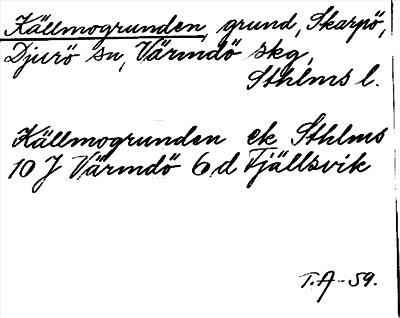 Källmogrunden, grund, Skarpö,
Djurö sn, Värmdö skg,
Sthlms l.
Källmogrunden ek Sthlms
10 J Värmdö 6 d Fjällsvik
T.A-59.